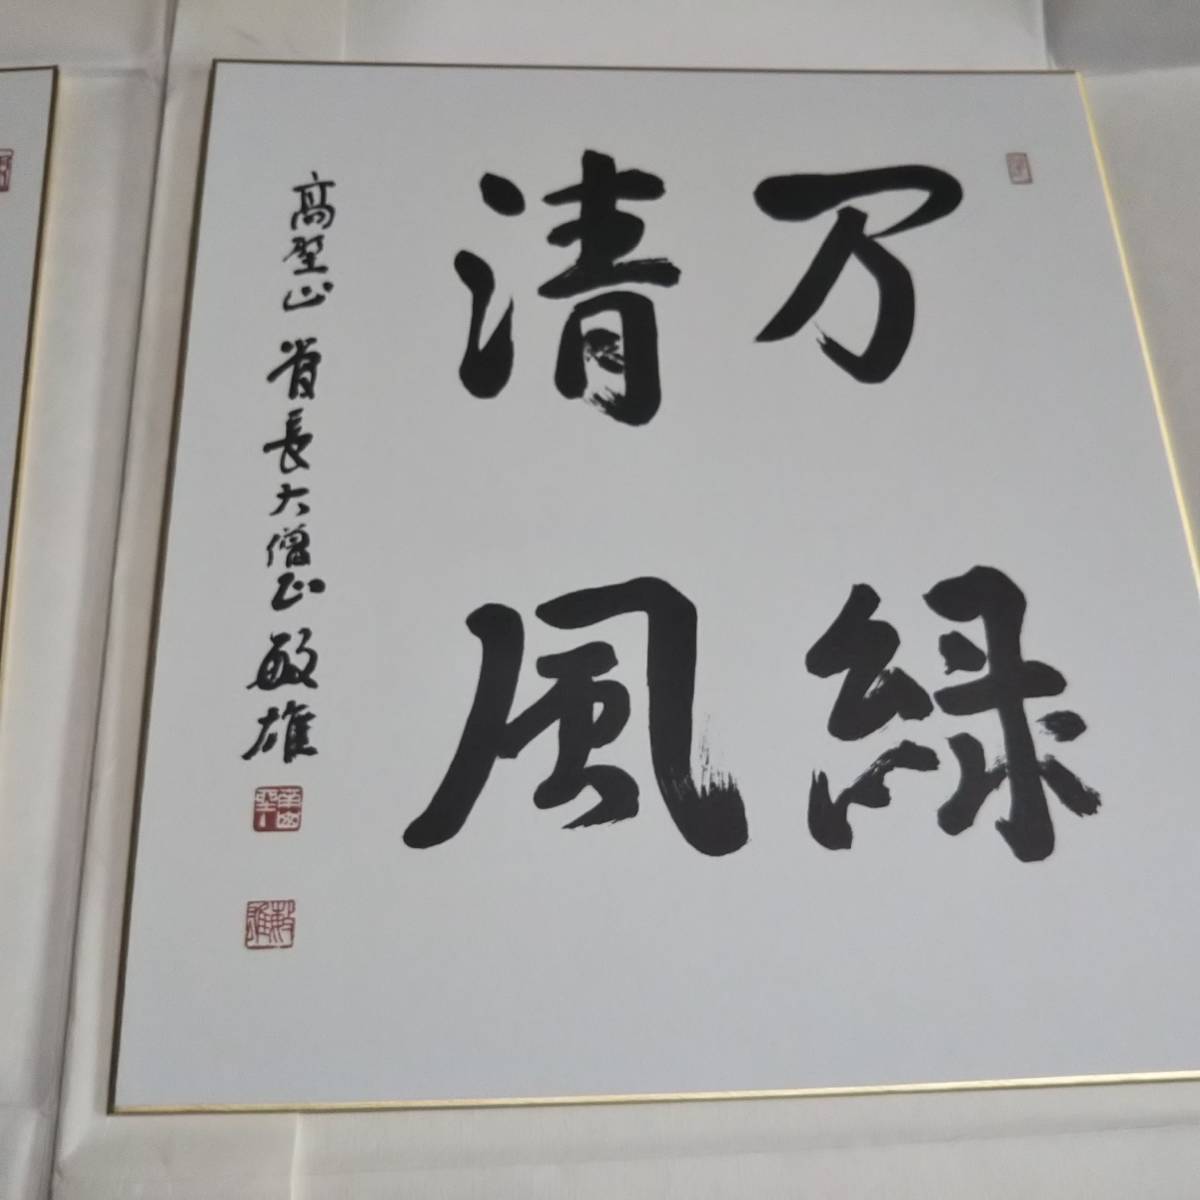 万緑
清風
高野山 管長大僧正 敏雄
敏雄